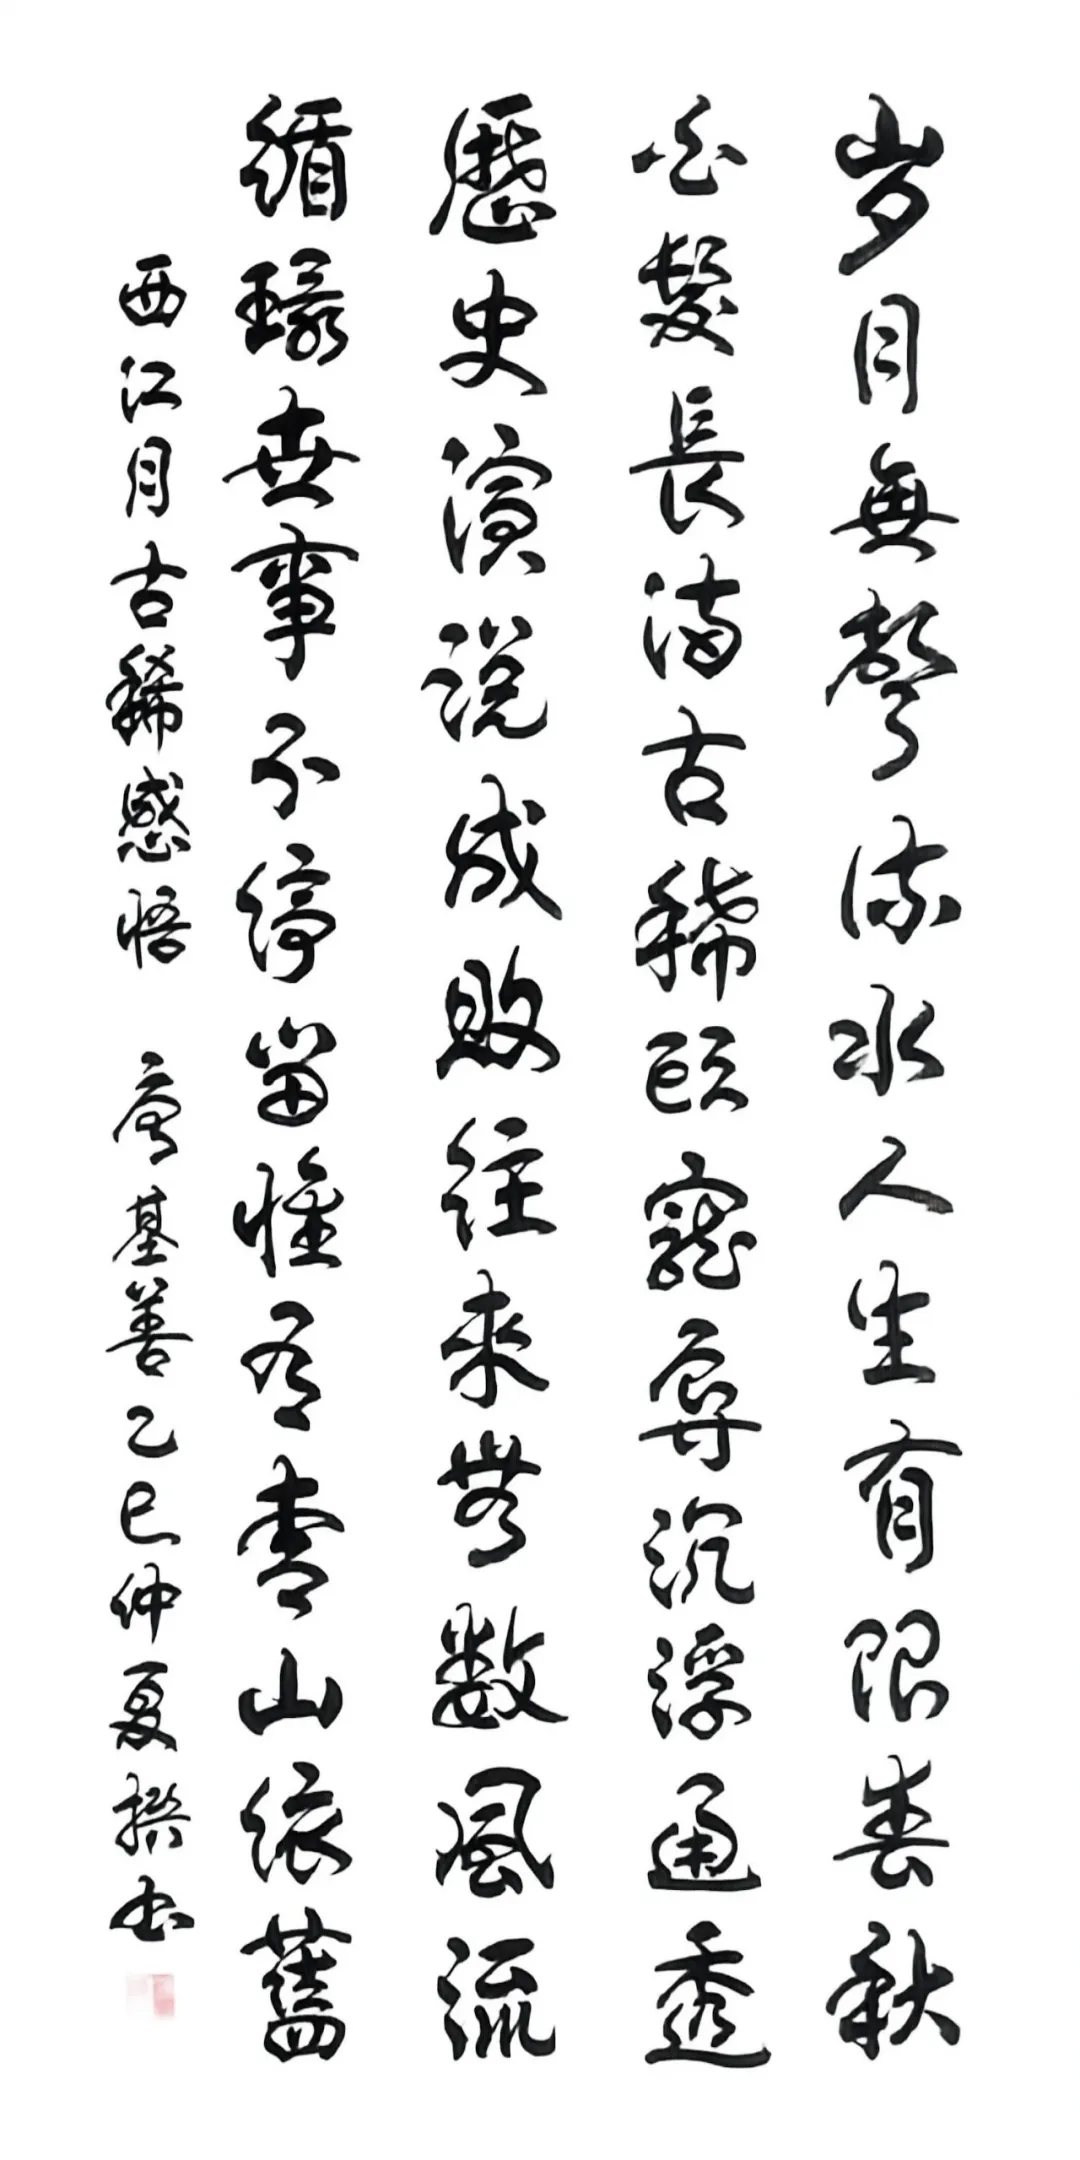 岁月無聲流水人生有限春秋
白髮長满古稀頭寵辱沉浮通透
歷史演说成敗往來無數風流
循環世事不停留惟有青山依舊
西江月古稀感悟 唐基善乙巳仲夏撰书